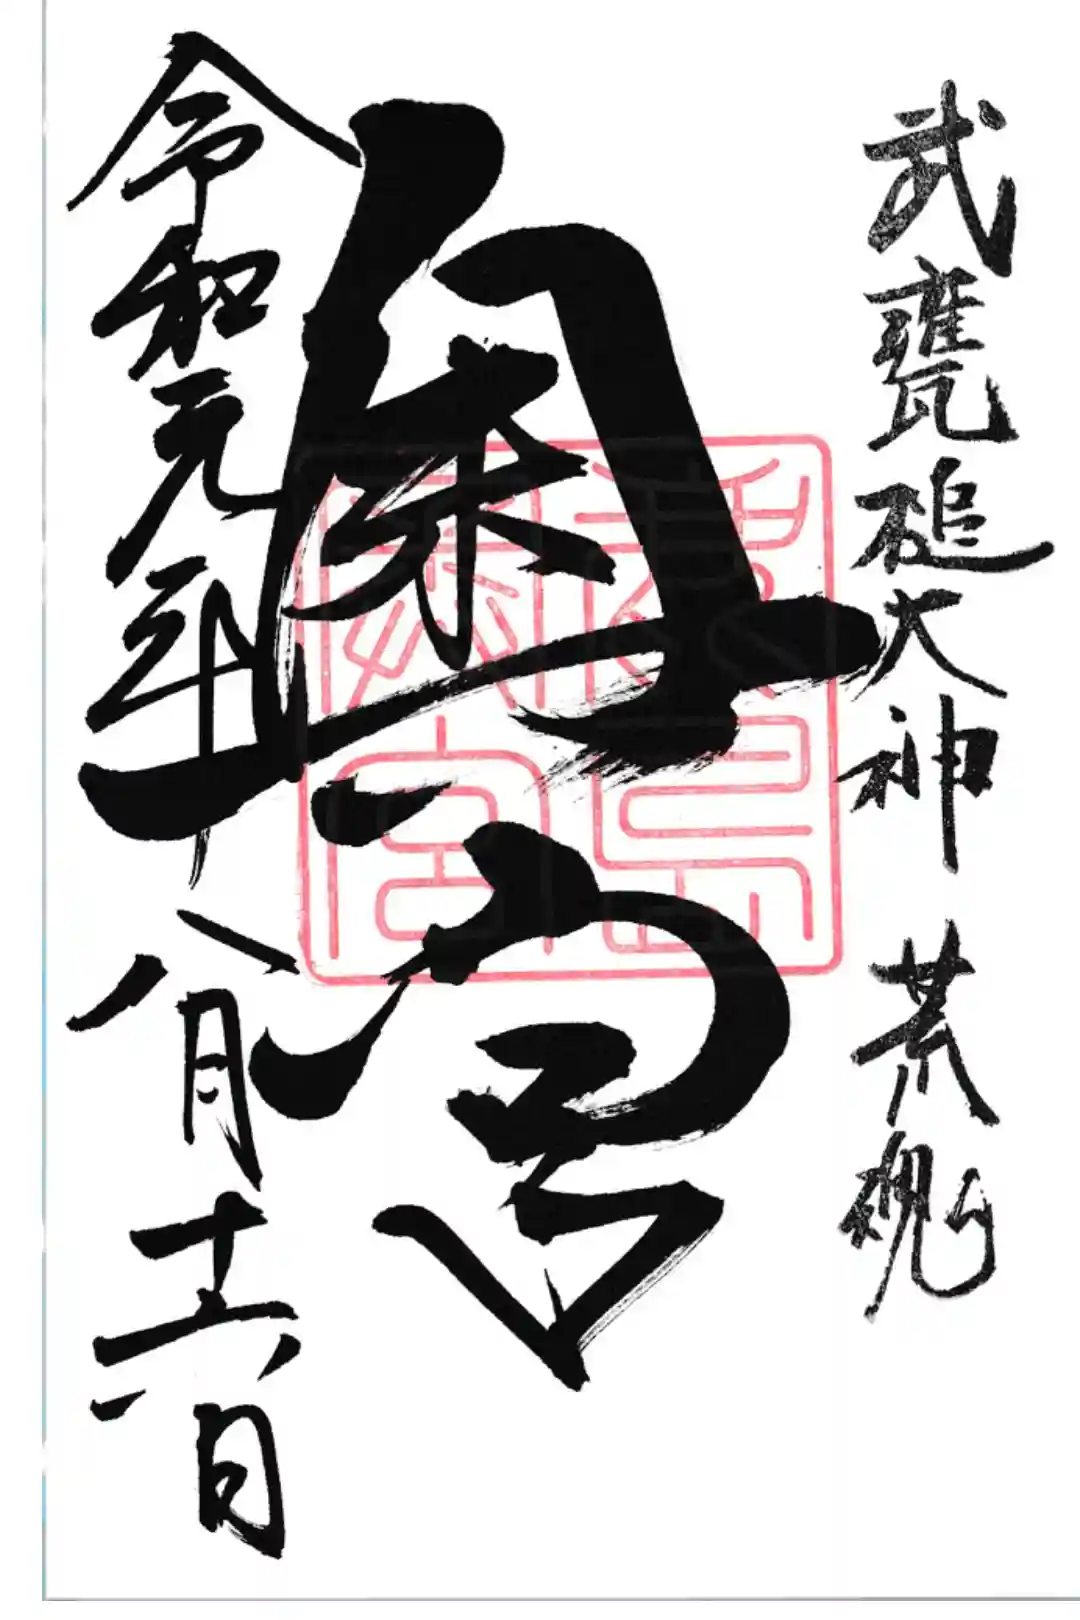 武甕槌大神 荒魂
奥宮
令和元年八月十六日
鹿島奥宮